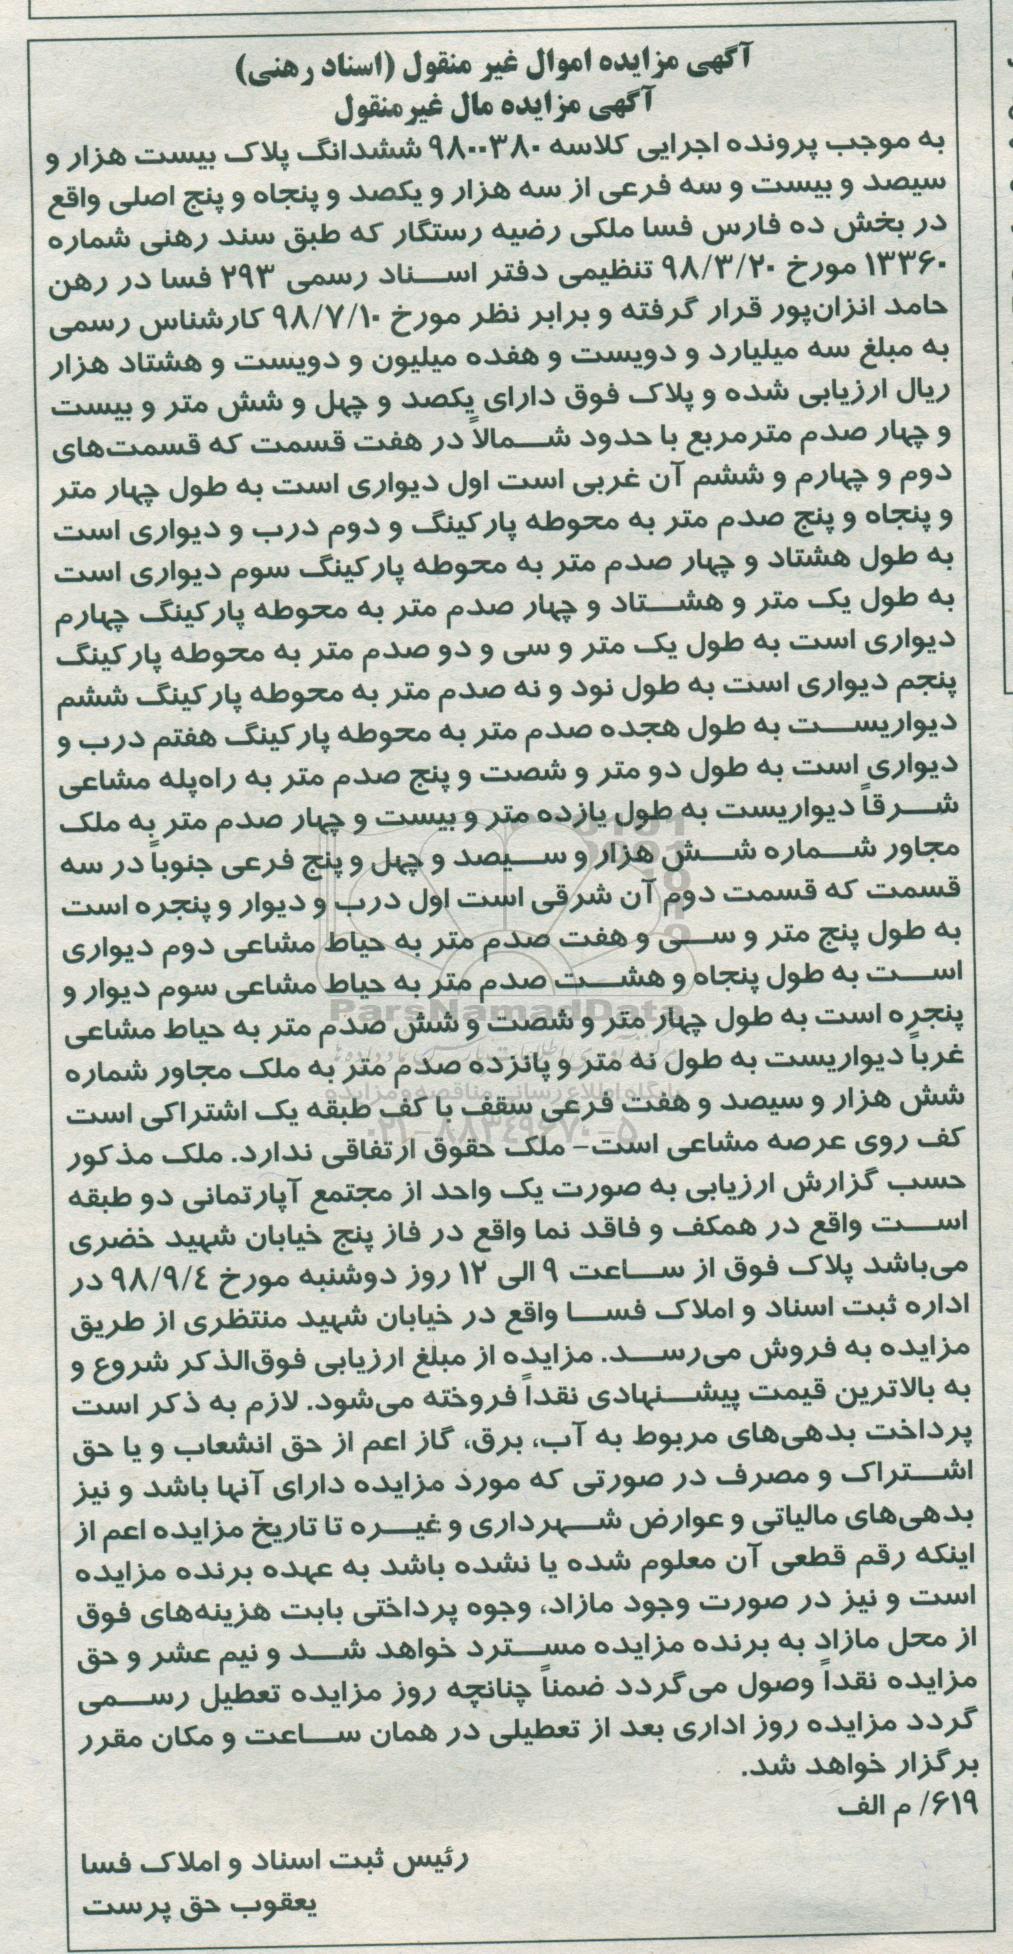 آگهی مزایده اموال غیر منقول (اسناد رهنی)
آگهی مزایده مال غیرمنقول
به موجب پرونده اجرایی کلاسه ۹۸۰۰۳۸۰ ششدانگ پلاک بیست هزار و
سیصد و بیست و سه فرعی از سه هزار و یکصد و پنجاه و پنج اصلی واقع
در بخش ده فارس فسا ملکی رضیه رستگار که طبق سند رهنی شماره
۱۳۳۶۰ مورخ ۹۸/۳/۲۰ تنظیمی دفتر اسناد رسمی ۲۹۳ فسا در رهن
حامد انزان‌پور قرار گرفته و برابر نظر مورخ ۹۸/۷/۱۰ کارشناس رسمی
به مبلغ سه میلیارد و دویست و هفده میلیون و دویست و هشتاد هزار
ریال ارزیابی شده و پلاک فوق دارای یکصد و چهل و شش متر و بیست
و چهار صدم مترمربع با حدود شمالاً در هفت قسمت که قسمت‌های
دوم و چهارم و ششم آن غربی است اول دیواری است به طول چهار متر
و پنجاه و پنج صدم متر به محوطه پارکینگ و دوم درب و دیواری است
به طول هشتاد و چهار صدم متر به محوطه پارکینگ سوم دیواری است
به طول یک متر و هشتاد و چهار صدم متر به محوطه پارکینگ چهارم
دیواری است به طول یک متر و سی و دو صدم متر به محوطه پارکینگ
پنجم دیواری است به طول نود و نه صدم متر به محوطه پارکینگ ششم
دیواریست به طول هجده صدم متر به محوطه پارکینگ هفتم درب و
دیواری است به طول دو متر و شصت و پنج صدم متر به راه‌پله مشاعی
شرقاً دیواریست به طول یازده متر و بیست و چهار صدم متر به ملک
مجاور شماره شش هزار و سیصد و چهل و پنج فرعی جنوباً در سه
قسمت که قسمت دوم آن شرقی است اول درب و دیوار و پنجره است
به طول پنج متر و سی و هفت صدم متر به حیاط مشاعی دوم دیواری
است به طول پنجاه و هشت صدم متر به حیاط مشاعی سوم دیوار و
پنجره است به طول چهار متر و شصت و شش صدم متر به حیاط مشاعی
غرباً دیواریست به طول نه متر و پانزده صدم متر به ملک مجاور شماره
شش هزار و سیصد و هفت فرعی سقف با کف طبقه یک اشتراکی است
کف روی عرصه مشاعی است- ملک حقوق ارتفاقی ندارد. ملک مذکور
حسب گزارش ارزیابی به صورت یک واحد از مجتمع آپارتمانی دو طبقه
است واقع در همکف و فاقد نما واقع در فاز پنج خیابان شهید خضری
می‌باشد پلاک فوق از ساعت ۹ الی ۱۲ روز دوشنبه مورخ ۹۸/۹/۴ در
اداره ثبت اسناد و املاک فسا واقع در خیابان شهید منتظری از طریق
مزایده به فروش می‌رسد. مزایده از مبلغ ارزیابی فوق‌الذکر شروع و
به بالاترین قیمت پیشنهادی نقداً فروخته می‌شود. لازم به ذکر است
پرداخت بدهی‌های مربوط به آب، برق، گاز اعم از حق انشعاب و یا حق
اشتراک و مصرف در صورتی که مورد مزایده دارای آنها باشد و نیز
بدهی‌های مالیاتی و عوارض شهرداری و غیره تا تاریخ مزایده اعم از
اینکه رقم قطعی آن معلوم شده یا نشده باشد به عهده برنده مزایده
است و نیز در صورت وجود مازاد، وجوه پرداختی بابت هزینه‌های فوق
از محل مازاد به برنده مزایده مسترد خواهد شد و نیم عشر و حق
مزایده نقداً وصول می‌گردد ضمناً چنانچه روز مزایده تعطیل رسمی
گردد مزایده روز اداری بعد از تعطیلی در همان ساعت و مکان مقرر
برگزار خواهد شد.
۶۱۹/ م الف
رئیس ثبت اسناد و املاک فسا
یعقوب حق پرست
ParsNamadData
پایگاه اطلاع رسانی مناقصه و مزایده
۰۲۱-۸۸۳۴۹۶۷۰-۵